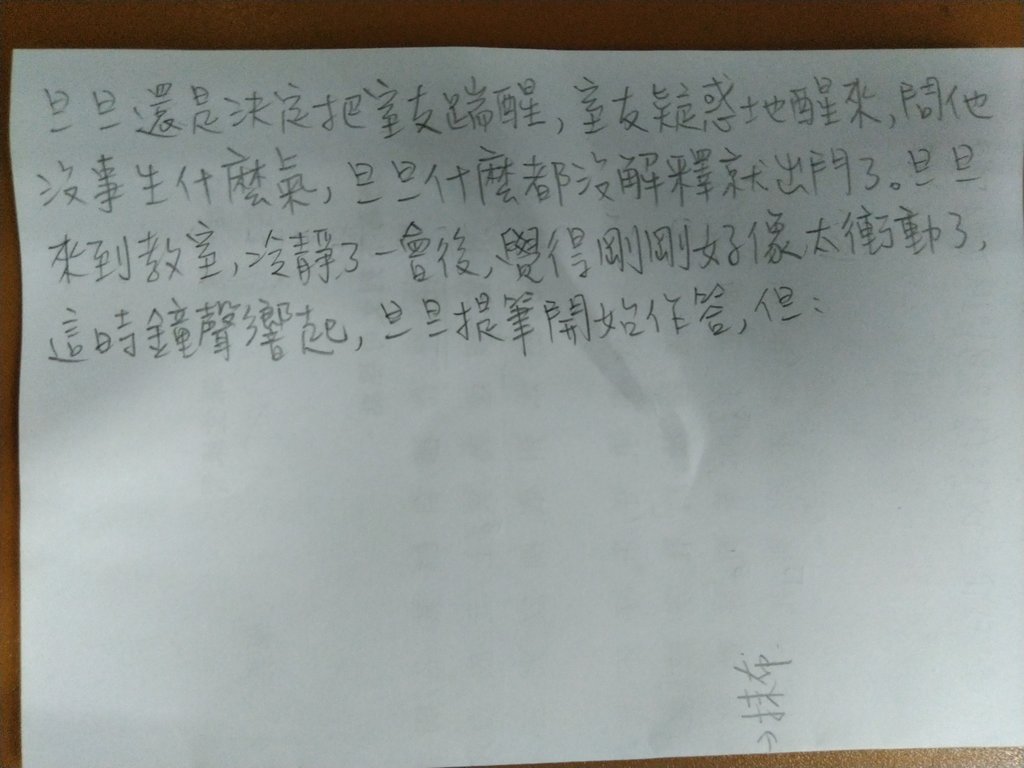 旦旦還是決定把室友踹醒,室友疑惑地醒來,問他
沒事生什麼氣,旦旦什麼都沒解釋就出門了。旦旦
來到教室,冷靜了一會後,覺得剛剛好像太衝動了,
這時鐘聲響起,旦旦提筆開始作答,但:
→抹布